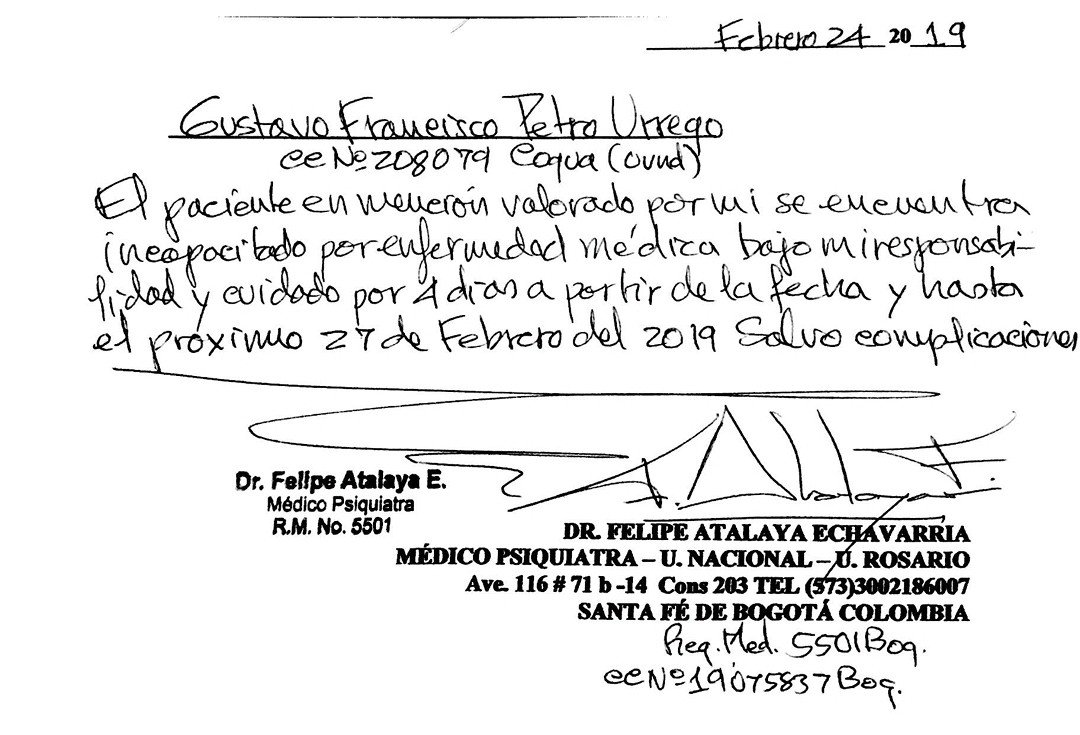 Febrero 24 2019
Gustavo Francisco Petro Urrego
cc Nº 208079 Cogua (Cund)
El paciente en mención valorado por mi se encuentra
incapacitado por enfermedad médica bajo mi responsabi-
lidad y cuidado por 4 dias a partir de la fecha y hasta
el próximo 27 de Febrero del 2019 Salvo complicaciones
Dr. Felipe Atalaya E.
Médico Psiquiatra
R.M. No. 5501
DR. FELIPE ATALAYA ECHAVARRIA
MÉDICO PSIQUIATRA – U. NACIONAL – U. ROSARIO
Ave. 116 # 71 b -14 Cons 203 TEL (573)3002186007
SANTA FÉ DE BOGOTÁ COLOMBIA
Reg. Med. 5501 Bog.
cc Nº 19075837 Bog.